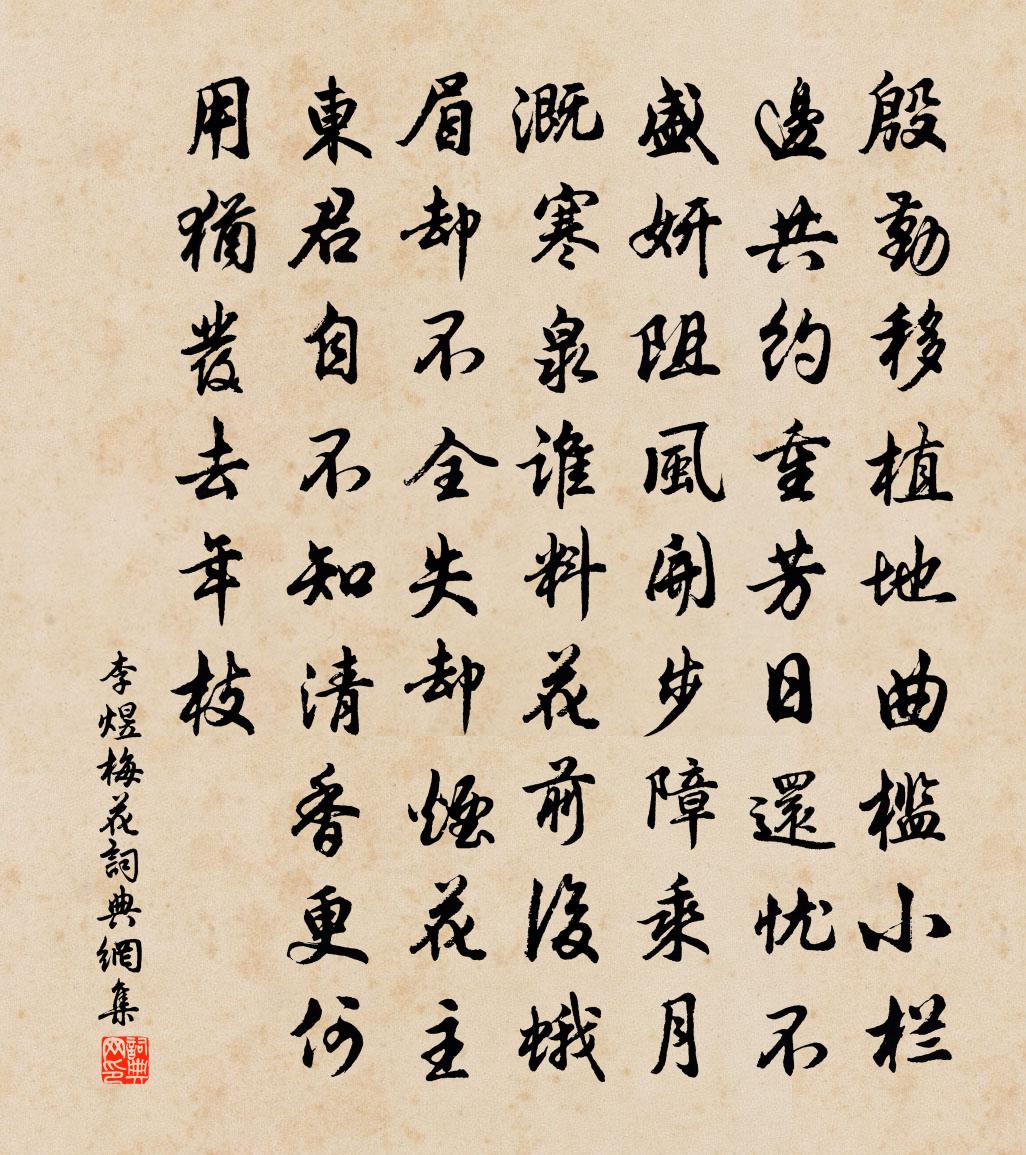 殷勤移植地曲檻小栏
邊共約重芳日還忧不
盛妍阻風開步障乘月
溉寒泉谁料花前後蛾
眉却不全失却煙花主
東君自不知清香更何
用猶發去年枝
李煜梅花詞典網集
詞典网印